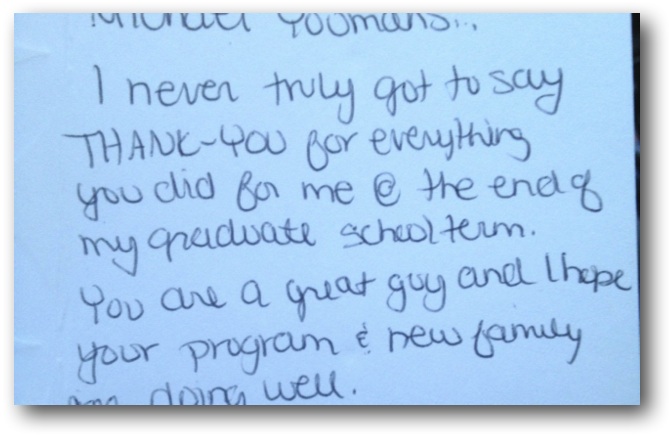 Michael Youmans...
I never truly got to say
THANK-YOU for everything
you did for me @ the end of
my graduate school term.
You are a great guy and I hope
your program & new family
are doing well.